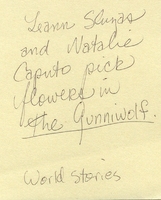 Leann Slunas
and Natalie
Caputo pick
flowers in
The Gunniwolf.
World Stories